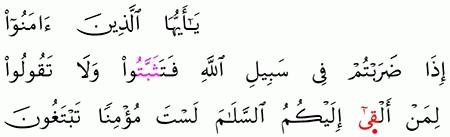 يَـٰٓأَيُّهَا ٱلَّذِينَ ءَامَنُوٓا۟
إِذَا ضَرَبْتُمْ فِى سَبِيلِ ٱللَّهِ فَتَثَبَّتُوا۟ وَلَا تَقُولُوا۟
لِمَنْ أَلْقىٰٓ إِلَيْكُمُ ٱلسَّلَمَ لَسْتَ مُؤْمِنًا تَبْتَغُونَ